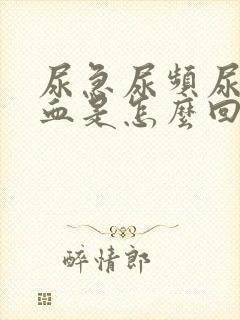 尿急尿頻尿
血是怎麼回
醉情郎